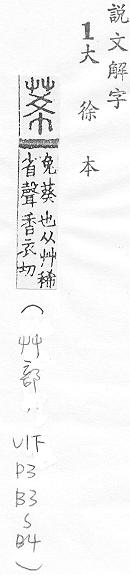 説文解字
1大徐本
莃
兔葵也从艸稀
省聲香衣切
(艸部,,
V1下
P3
B3
S
B4
)